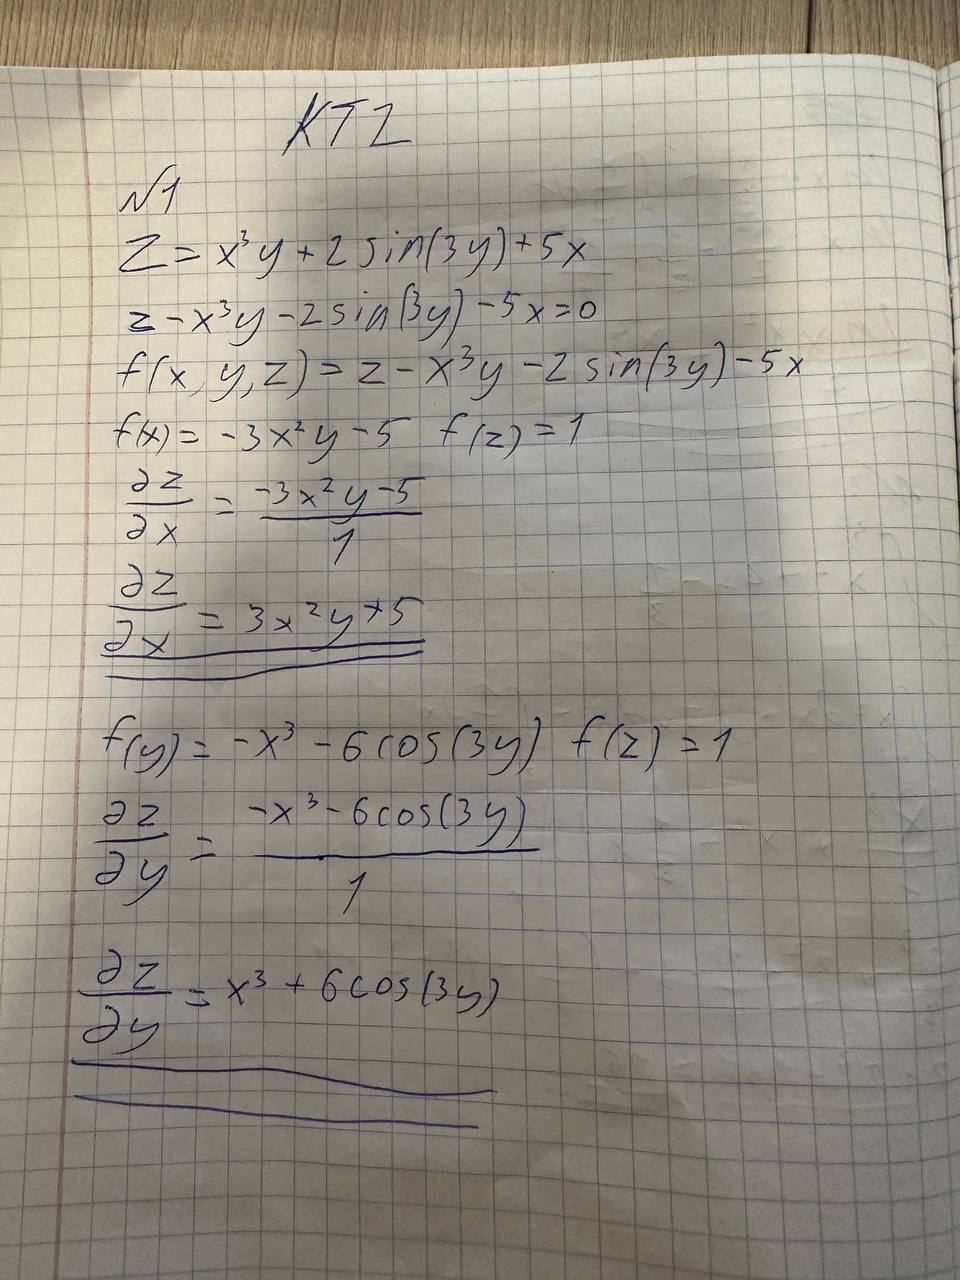 КТ2
№1
z = x³y + 2 sin(3y) + 5x
z - x³y - 2 sin(3y) - 5x = 0
f(x, y, z) = z - x³y - 2 sin(3y) - 5x
f(x) = -3x²y - 5 f(z) = 1
∂z/∂x = (-3x²y - 5)/1
∂z/∂x = 3x²y + 5
f(y) = -x³ - 6cos(3y) f(z) = 1
∂z/∂y = (-x³ - 6cos(3y))/1
∂z/∂y = x³ + 6cos(3y)